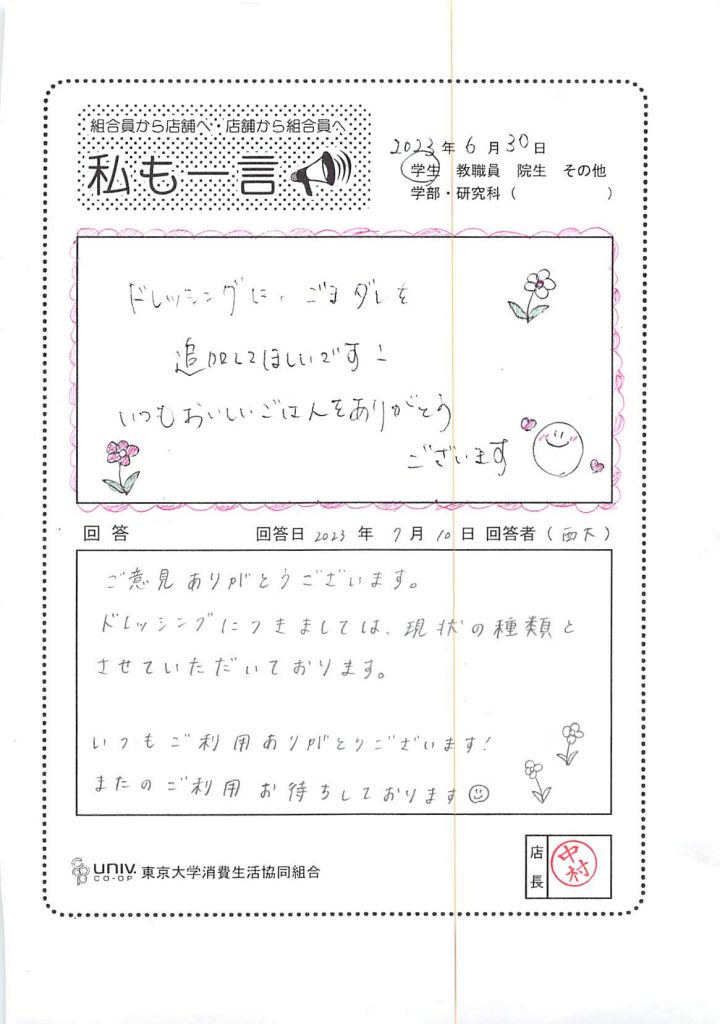 組合員から店舗へ・店舗から組合員へ
私も一言
2023年6月30日
学生 教職員 院生 その他
学部・研究科（ ）
ドレッシングに、ごまダレを
追加してほしいです！
いつもおいしいごはんをありがとう
ございます
回答 回答日 2023年 7月10日 回答者（西大）
ご意見ありがとうございます。
ドレッシングにつきましては、現状の種類と
させていただいております。
いつもご利用ありがとうございます!
またのご利用お待ちしております
UNIV. CO-OP 東京大学消費生活協同組合
店長
中村